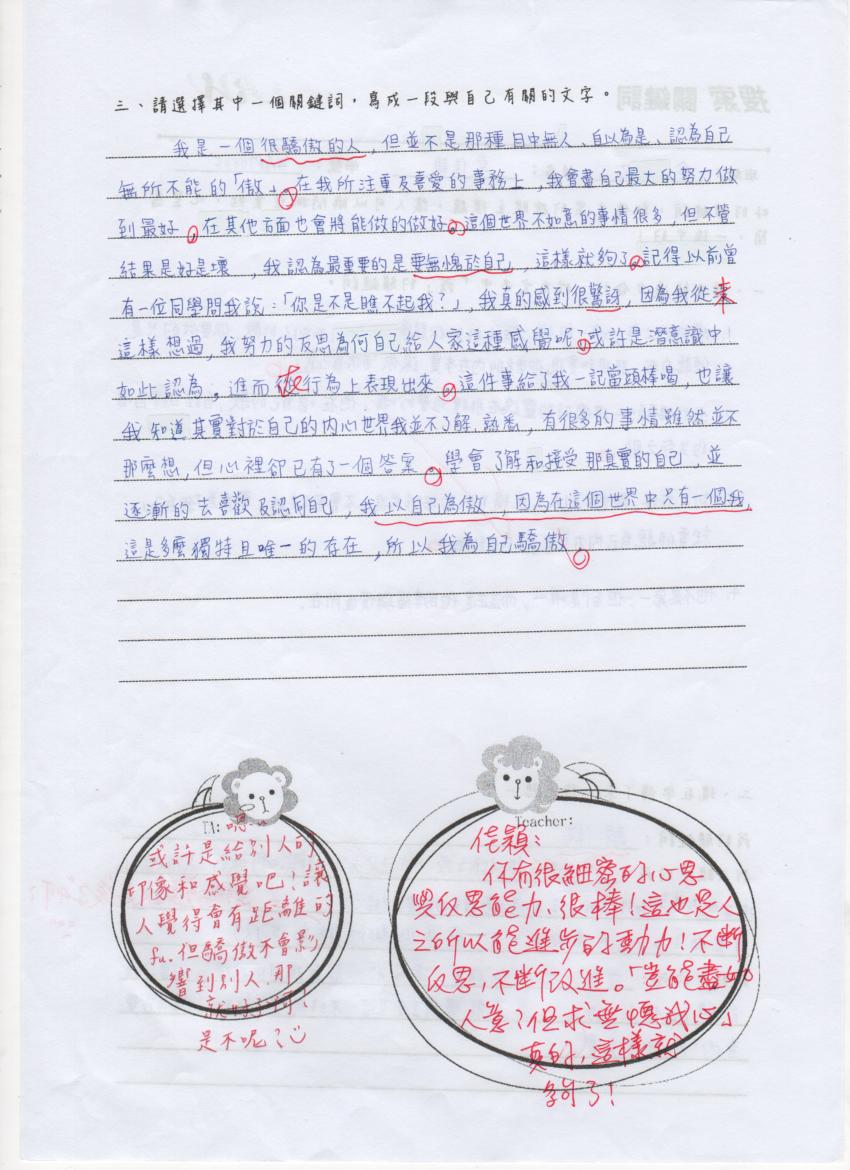 三、請選擇其中一個關鍵詞，寫成一段與自己有關的文字。
我是一個很驕傲的人，但並不是那種目中無人、自以為是、認為自己
無所不能的「傲」。在我所注重及喜愛的事務上，我會盡自己最大的努力做
到最好，在其他方面也會將能做的做好。這個世界不如意的事情很多，但不管
結果是好是壞，我認為最重要的是要無愧於自己，這樣就夠了。記得以前曾
有一位同學問我說：「你是不是瞧不起我？」，我真的感到很驚訝，因為我從未
這樣想過，我努力的反思為何自己給人家這種感覺呢？或許是潛意識中
如此認為，進而在行為上表現出來。這件事給了我一記當頭棒喝，也讓
我知道其實對於自己的內心世界我並不了解、熟悉，有很多的事情雖然並不
那麼想，但心裡卻已有了一個答案。學會了解和接受那真實的自己，並
逐漸的去喜歡及認同自己，我以自己為傲，因為在這個世界中只有一個我，
這是多麼獨特且唯一的存在，所以我為自己驕傲。
TA: 嗯…
或許是給別人的
印像和感覺吧！讓
人覺得會有距離的
fu.但驕傲不會影
響到別人，那
就好了啊！
是不呢？
Teacher:
佳穎：
你有很細密的心思
與反思能力，很棒！這也是人
之所以能進步的動力！不斷
反思，不斷改進。「豈能盡如
人意？但求無愧我心」
真的，這樣就
夠了！